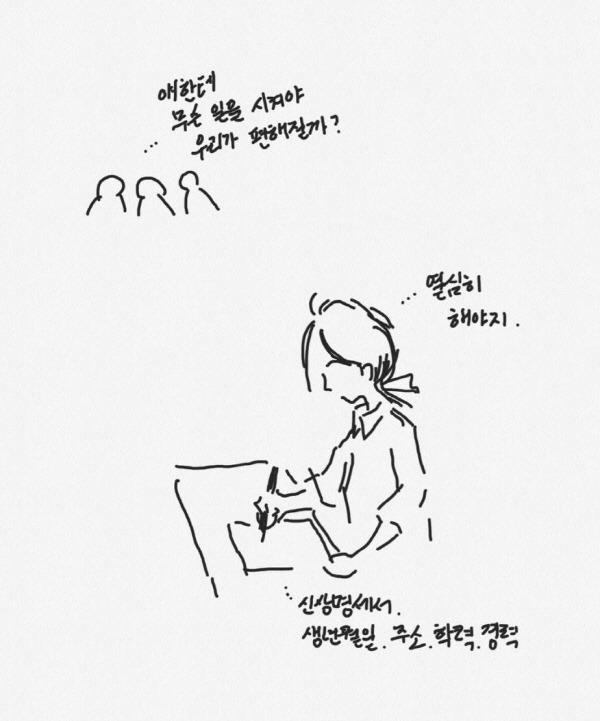 얘한테
무슨 일을 시켜야
우리가 편해질까?
열심히
해야지.
신상명세서.
생년월일. 주소. 학력. 경력